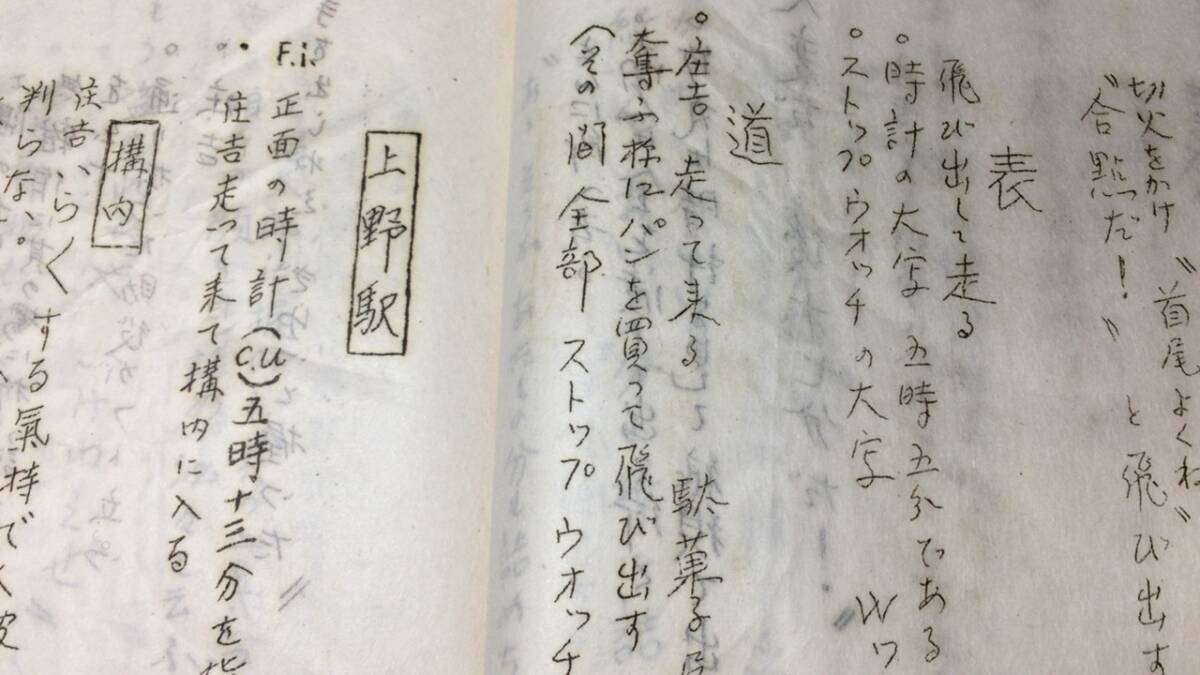 〝首尾よくね〟
切火をかけ
〝合點だ！〟と飛び出す
表
飛び出して走る
○時計の大字 五時五分である
○ストップウオッチの大字 W ワ
道
○庄吉 走って来る 駄菓子屋
奪ふ様にパンを買って飛び出す
（その間 全部 ストップ ウオッチ
上野駅
F.i. 正面の時計（C.U）五時十三分を指
庄吉走って来て構内に入る
構内
庄吉いらくする氣持で大
判らない。